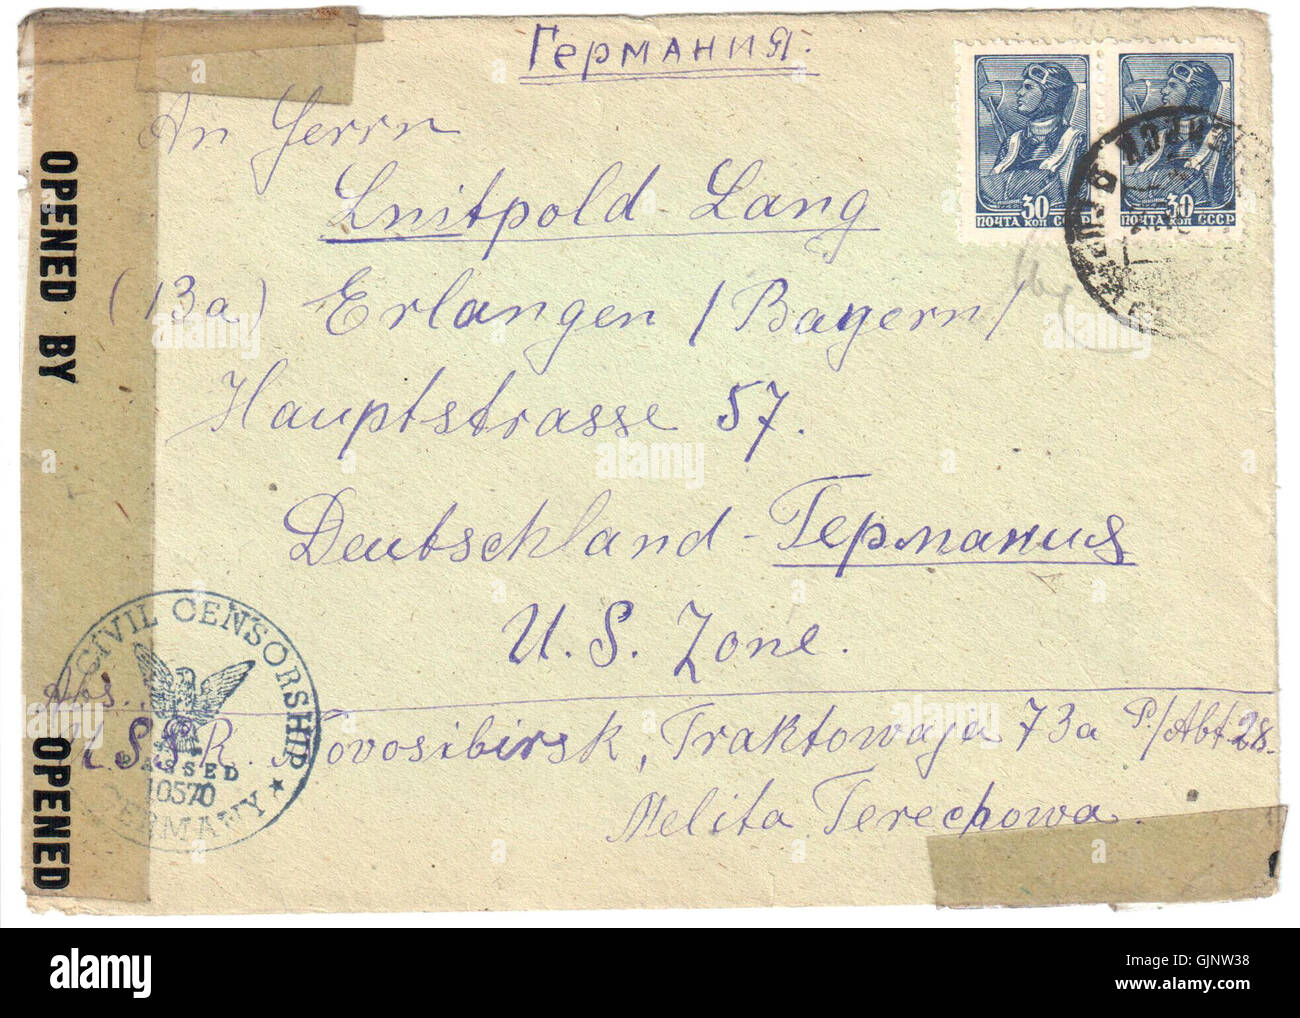 Германия.
An Herrn
Luitpold Lang
(13a) Erlangen /Bayern/
Hauptstrasse 57.
Deutschland - Германия
U. S. Zone.
Abs.
Novosibirsk, Traktowaja 73a P./Abt 28.
Melita Terechowa
30 30
ПОЧТА КОП СССР ПОЧТА КОП СССР
OPENED BY
OPENED
CIVIL CENSORSHIP
PASSED
10570
GERMANY ★
alamy
alamy
Image ID: GJNW38
www.alamy.com